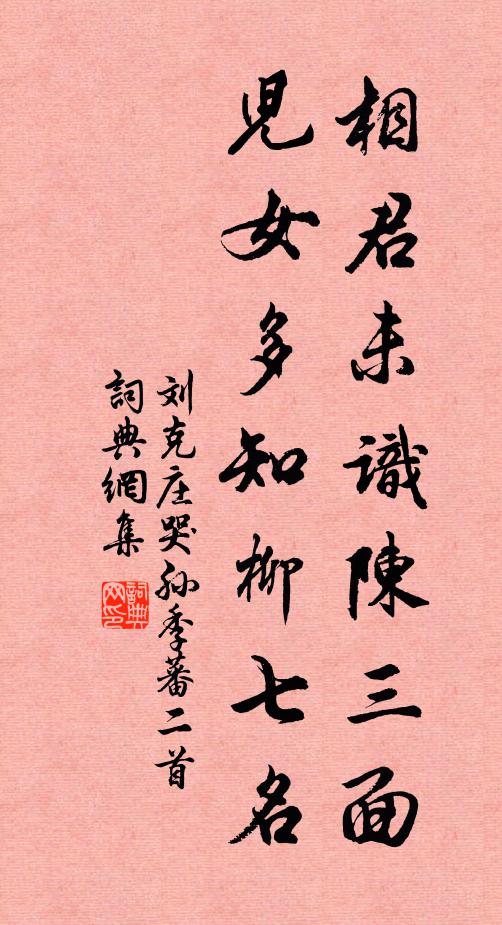 相君未識陳三面
兒女多知柳七名
刘克庄哭孙季蕃二首
詞典網集
詞典网印